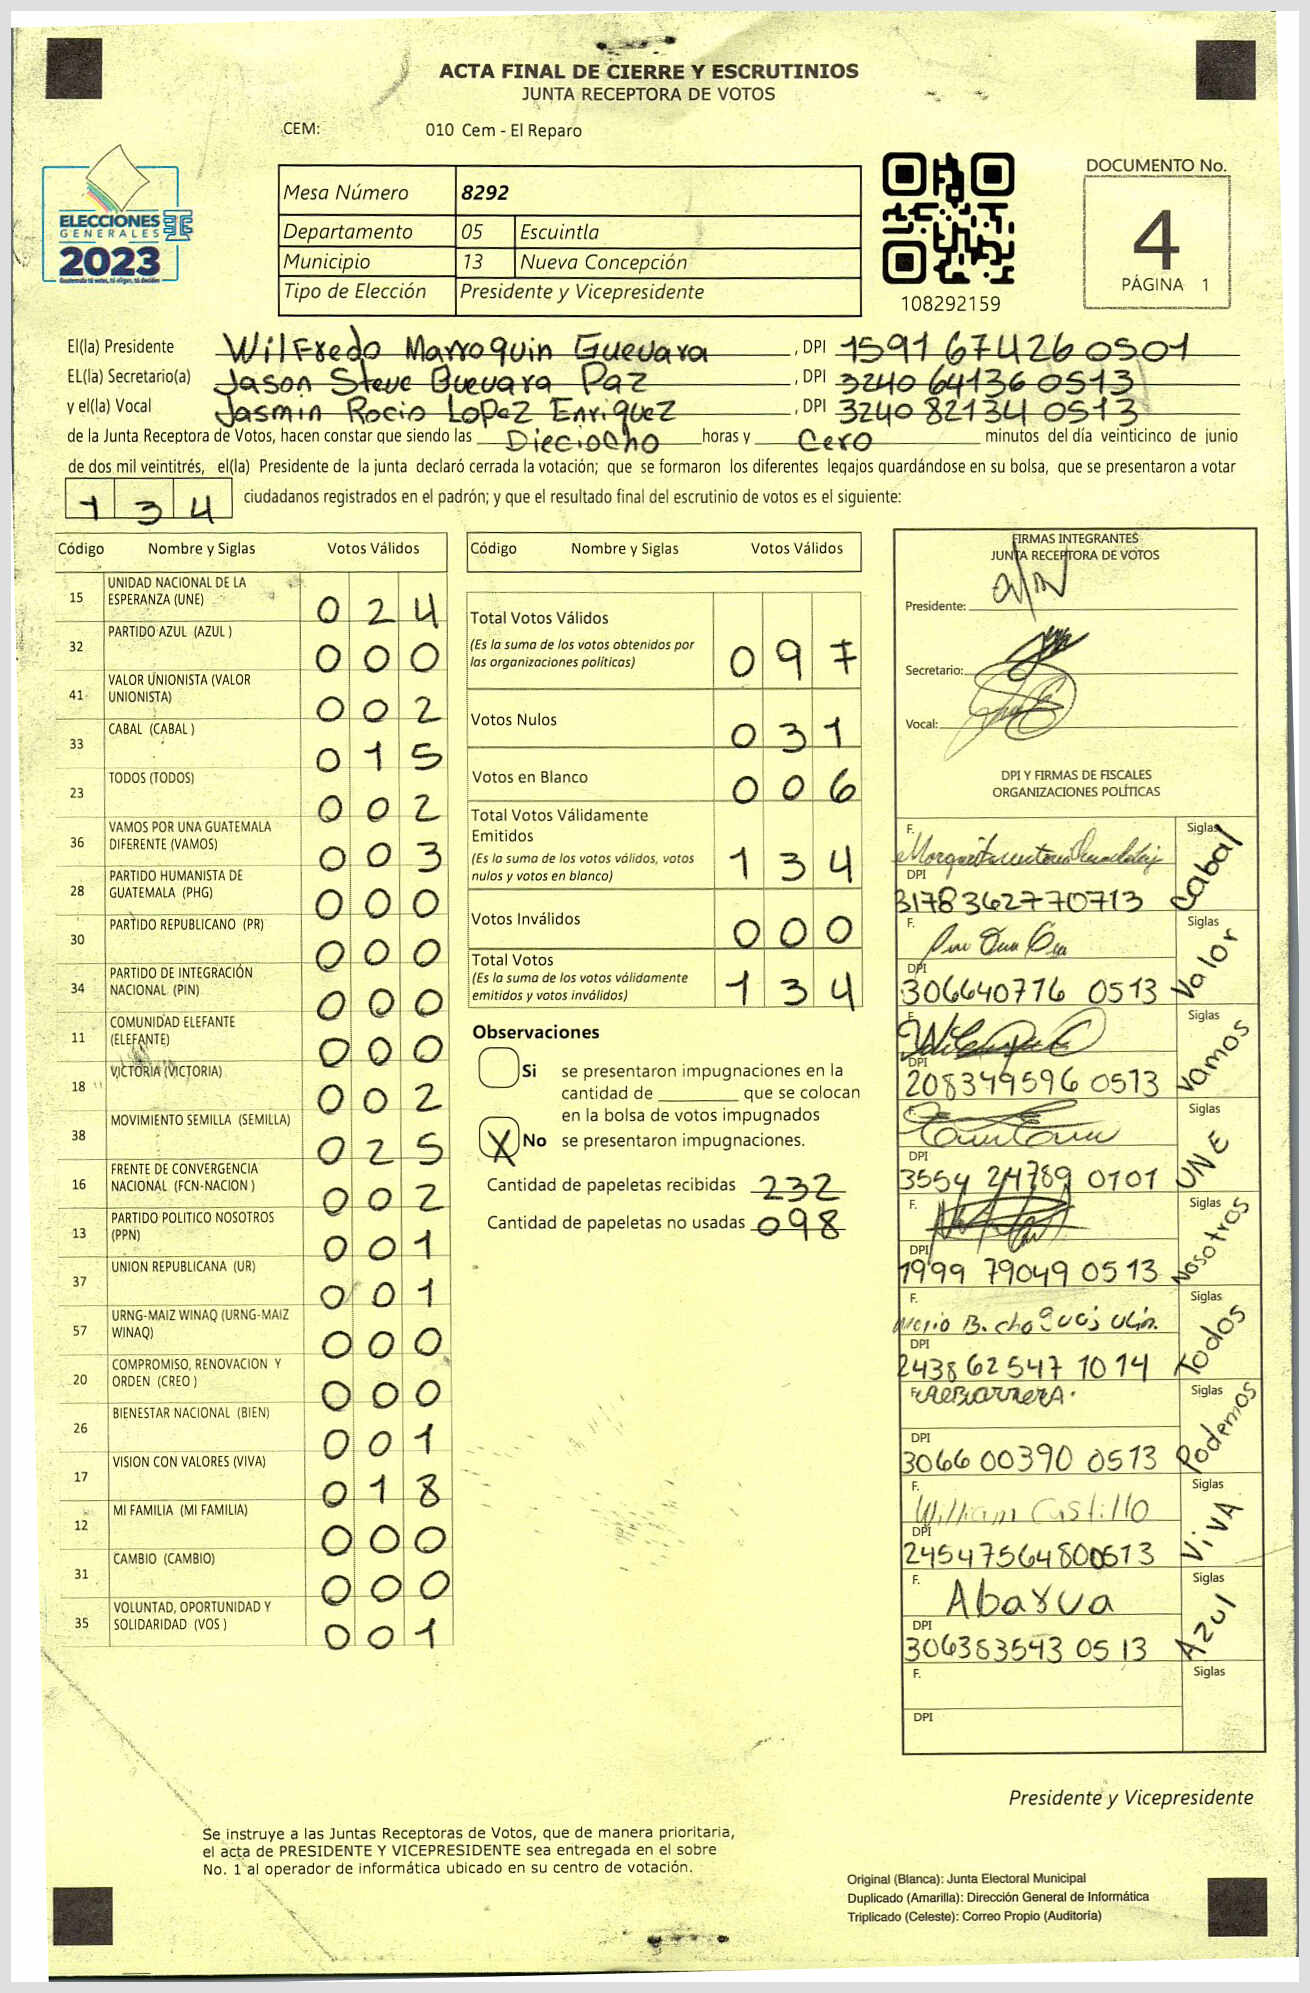 ACTA FINAL DE CIERRE Y ESCRUTINIOS
JUNTA RECEPTORA DE VOTOS
CEM: 010 Cem - El Reparo
ELECCIONES
GENERALES
2023
Guatemala tú votas, tú eliges, tú decides
Mesa Número 8292
Departamento 05 Escuintla
Municipio 13 Nueva Concepción
Tipo de Elección Presidente y Vicepresidente
108292159
DOCUMENTO No.
4
PÁGINA 1
El(la) Presidente Wilfredo Marroquin Guevara , DPI 1591 67426 0501
EL(la) Secretario(a) Jason Steve Guevara Paz , DPI 3240 64136 0513
y el(la) Vocal Jasmin Rocio Lopez Enriquez , DPI 3240 82134 0513
de la Junta Receptora de Votos, hacen constar que siendo las Dieciocho horas y Cero minutos del día veinticinco de junio
de dos mil veintitrés, el(la) Presidente de la junta declaró cerrada la votación; que se formaron los diferentes legajos guardándose en su bolsa, que se presentaron a votar
134 ciudadanos registrados en el padrón; y que el resultado final del escrutinio de votos es el siguiente:
Código Nombre y Siglas Votos Válidos
15 UNIDAD NACIONAL DE LA ESPERANZA (UNE) 024
32 PARTIDO AZUL (AZUL ) 000
41 VALOR UNIONISTA (VALOR UNIONISTA) 002
33 CABAL (CABAL ) 015
23 TODOS (TODOS) 002
36 VAMOS POR UNA GUATEMALA DIFERENTE (VAMOS) 003
28 PARTIDO HUMANISTA DE GUATEMALA (PHG) 000
30 PARTIDO REPUBLICANO (PR) 000
34 PARTIDO DE INTEGRACIÓN NACIONAL (PIN) 000
11 COMUNIDAD ELEFANTE (ELEFANTE) 000
18 VICTORIA (VICTORIA) 002
38 MOVIMIENTO SEMILLA (SEMILLA) 025
16 FRENTE DE CONVERGENCIA NACIONAL (FCN-NACION ) 002
13 PARTIDO POLITICO NOSOTROS (PPN) 001
37 UNION REPUBLICANA (UR) 001
57 URNG-MAIZ WINAQ (URNG-MAIZ WINAQ) 000
20 COMPROMISO, RENOVACION Y ORDEN (CREO ) 000
26 BIENESTAR NACIONAL (BIEN) 001
17 VISION CON VALORES (VIVA) 018
12 MI FAMILIA (MI FAMILIA) 000
31 CAMBIO (CAMBIO) 000
35 VOLUNTAD, OPORTUNIDAD Y SOLIDARIDAD (VOS ) 001
Código Nombre y Siglas Votos Válidos
Total Votos Válidos
(Es la suma de los votos obtenidos por
las organizaciones políticas) 097
Votos Nulos 031
Votos en Blanco 006
Total Votos Válidamente
Emitidos
(Es la suma de los votos válidos, votos
nulos y votos en blanco) 134
Votos Inválidos 000
Total Votos
(Es la suma de los votos válidamente
emitidos y votos inválidos) 134
Observaciones
Si se presentaron impugnaciones en la
cantidad de ________ que se colocan
en la bolsa de votos impugnados
X No se presentaron impugnaciones.
Cantidad de papeletas recibidas 232
Cantidad de papeletas no usadas 098
FIRMAS INTEGRANTES
JUNTA RECEPTORA DE VOTOS
Presidente:
Secretario:
Vocal:
DPI Y FIRMAS DE FISCALES
ORGANIZACIONES POLÍTICAS
F. Siglas Cabal
DPI 3178362770713
F. Siglas Valor
DPI 306640776 0513
F. Siglas Vamos
DPI 208349596 0513
F. Siglas UNE
DPI 3554 24789 0101
F. Siglas Nosotros
DPI 1999 79049 0513
F. Siglas Todos
DPI 2438 62547 1014
F. Siglas Podemos
DPI 3066 00390 0513
F. William Castillo Siglas VIVA
DPI 24547564800513
F. Siglas Azul
DPI 306383543 0513
F. Siglas
DPI
Presidente y Vicepresidente
Se instruye a las Juntas Receptoras de Votos, que de manera prioritaria,
el acta de PRESIDENTE Y VICEPRESIDENTE sea entregada en el sobre
No. 1 al operador de informática ubicado en su centro de votación.
Original (Blanca): Junta Electoral Municipal
Duplicado (Amarilla): Dirección General de Informática
Triplicado (Celeste): Correo Propio (Auditoría)